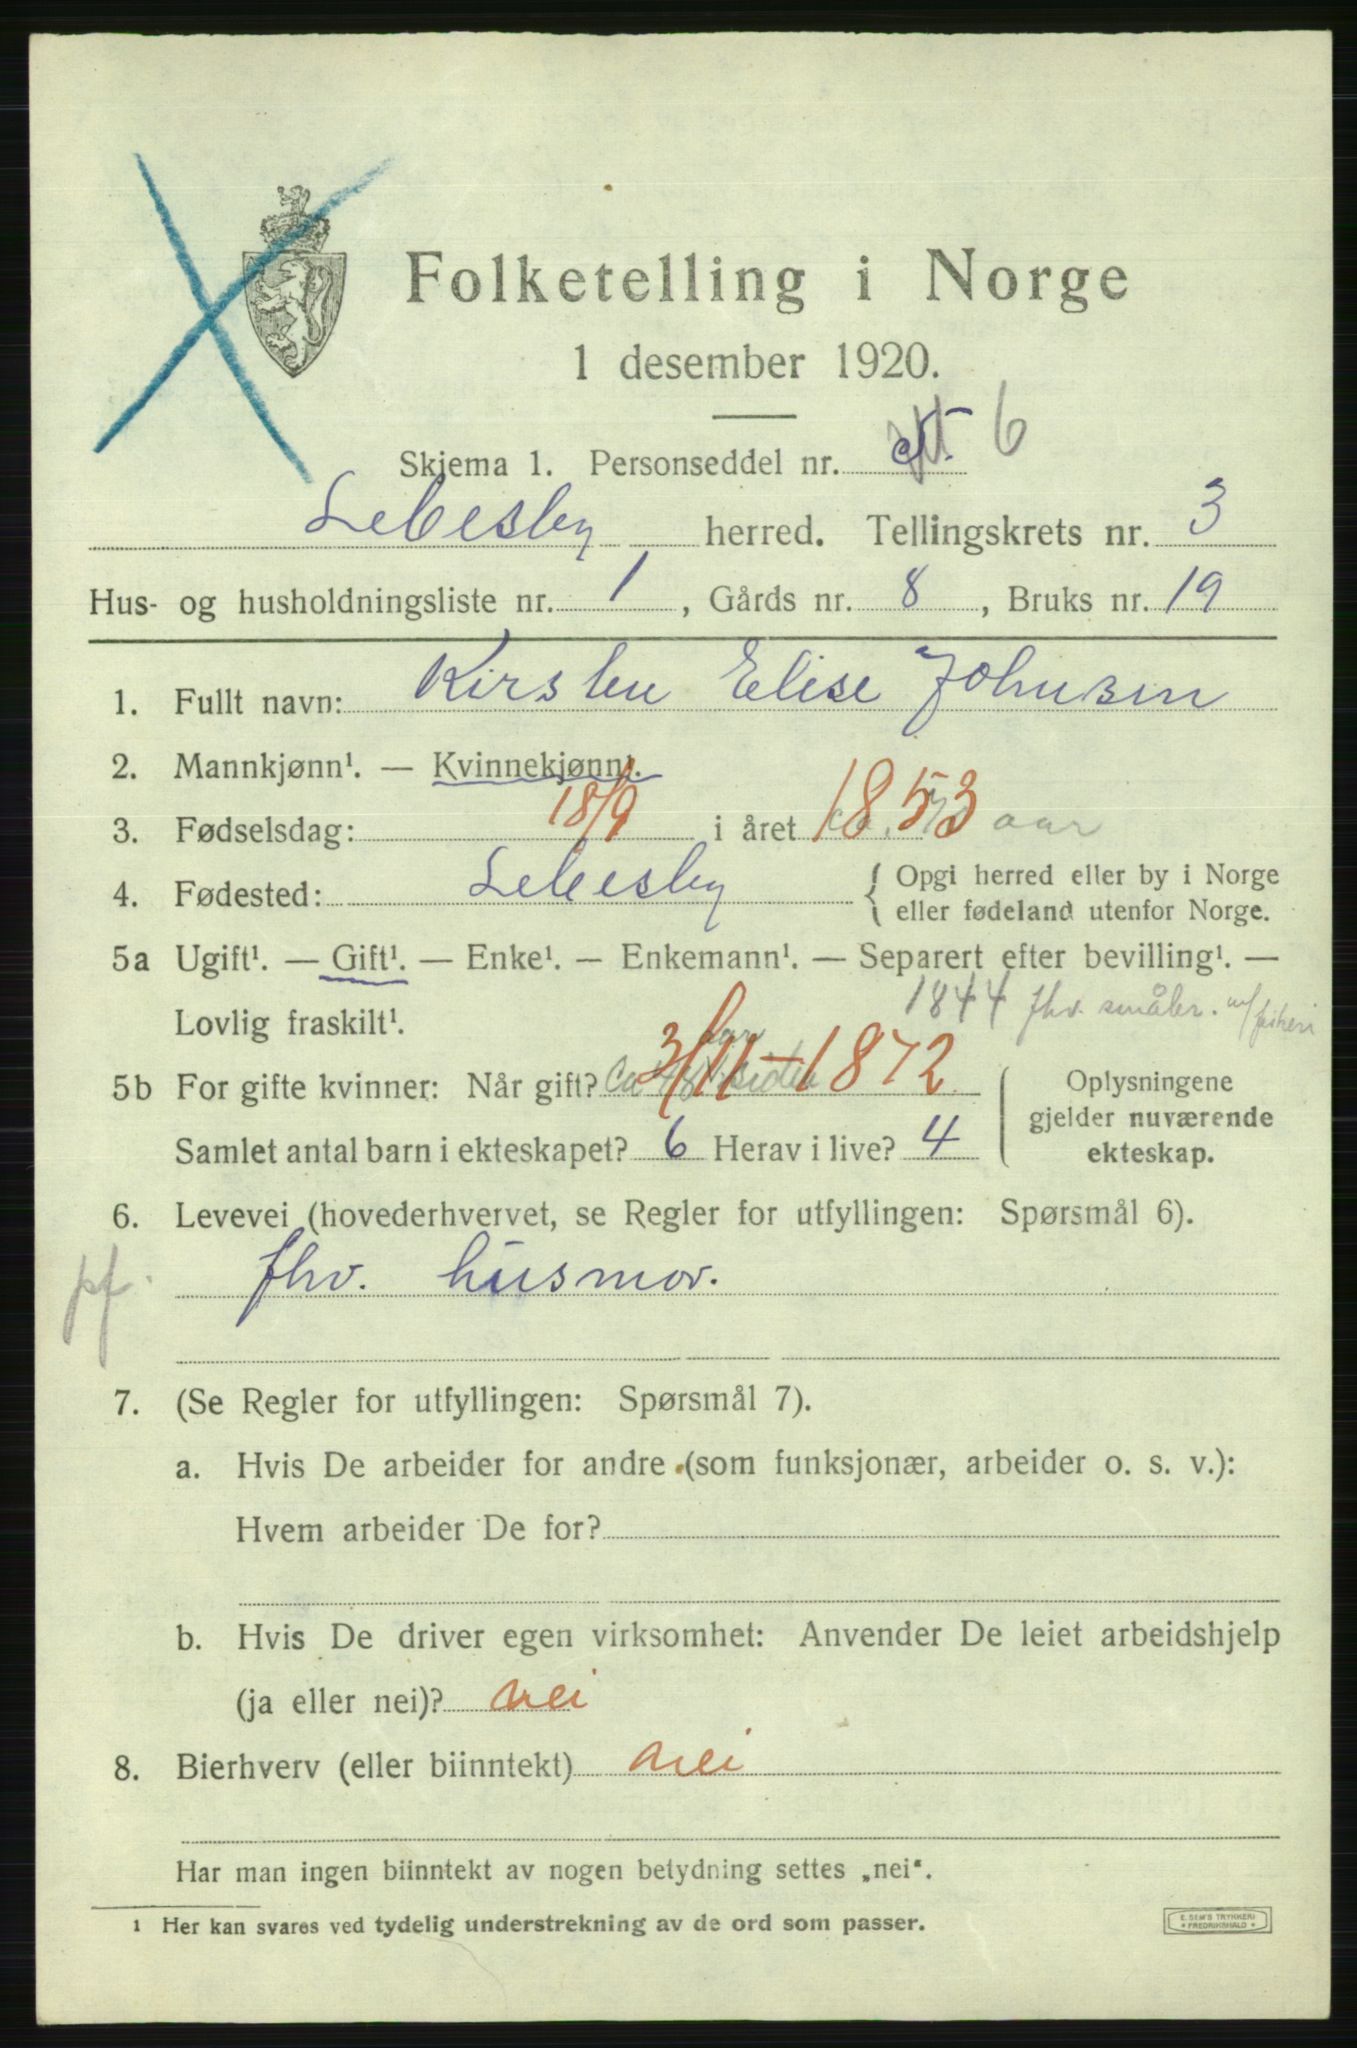 Folketelling i Norge
1 desember 1920.
Skjema 1. Personseddel nr. 6
Lebesby herred. Tellingskrets nr. 3
Hus- og husholdningsliste nr. 1, Gårds nr. 8, Bruks nr. 19
1. Fullt navn: Kirsten Elise Johnsen
2. Mannkjønn¹. — Kvinnekjønn¹.
3. Fødselsdag: 18/9 i året 1853 aar
4. Fødested: Lebesby { Opgi herred eller by i Norge
eller fødeland utenfor Norge.
5a Ugift¹. — Gift¹. — Enke¹. — Enkemann¹. — Separert efter bevilling¹. —
Lovlig fraskilt¹. 1844 fhv. småbr. m/fiskeri
5b For gifte kvinner: Når gift? Ca 48 aar siden 3/11-1872
Samlet antal barn i ekteskapet? 6 Herav i live? 4
Oplysningene
gjelder nuværende
ekteskap.
6. Levevei (hovederhvervet, se Regler for utfyllingen: Spørsmål 6).
pf. fhv. husmor.
7. (Se Regler for utfyllingen: Spørsmål 7).
a. Hvis De arbeider for andre (som funksjonær, arbeider o. s. v.):
Hvem arbeider De for?
b. Hvis De driver egen virksomhet: Anvender De leiet arbeidshjelp
(ja eller nei)? nei
8. Bierhverv (eller biinntekt) nei
Har man ingen biinntekt av nogen betydning settes „nei“.
1 Her kan svares ved tydelig understrekning av de ord som passer.
E. SEM'S TRYKKERI
FREDRIKSHALD